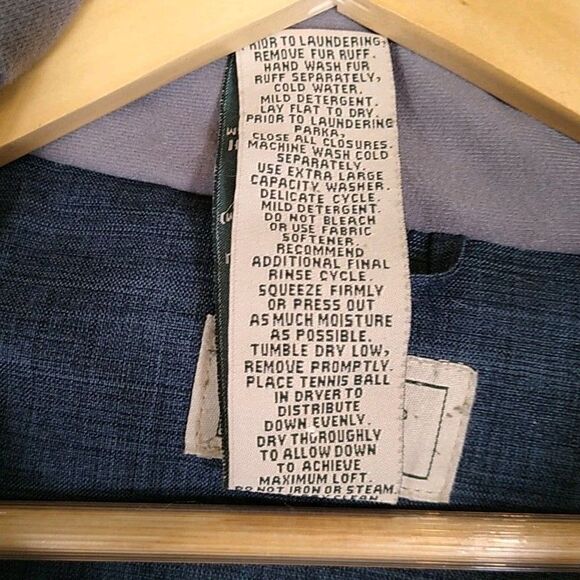 PRIOR TO LAUNDERING,
REMOVE FUR RUFF.
HAND WASH FUR
RUFF SEPARATELY,
COLD WATER.
MILD DETERGENT.
LAY FLAT TO DRY.
PRIOR TO LAUNDERING
PARKA,
CLOSE ALL CLOSURES.
MACHINE WASH COLD
SEPARATELY.
USE EXTRA LARGE
CAPACITY WASHER.
DELICATE CYCLE.
MILD DETERGENT.
DO NOT BLEACH
OR USE FABRIC
SOFTENER.
RECOMMEND
ADDITIONAL FINAL
RINSE CYCLE.
SQUEEZE FIRMLY
OR PRESS OUT
AS MUCH MOISTURE
AS POSSIBLE.
TUMBLE DRY LOW,
REMOVE PROMPTLY.
PLACE TENNIS BALL
IN DRYER TO
DISTRIBUTE
DOWN EVENLY.
DRY THOROUGHLY
TO ALLOW DOWN
TO ACHIEVE
MAXIMUM LOFT.
DO NOT IRON OR STEAM.
CLEAN